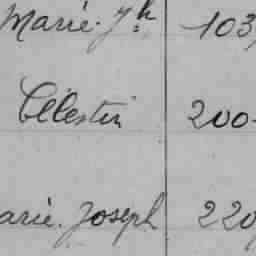 Marie. Jh 103,
Célestin 200-
arie. Joseph 220,